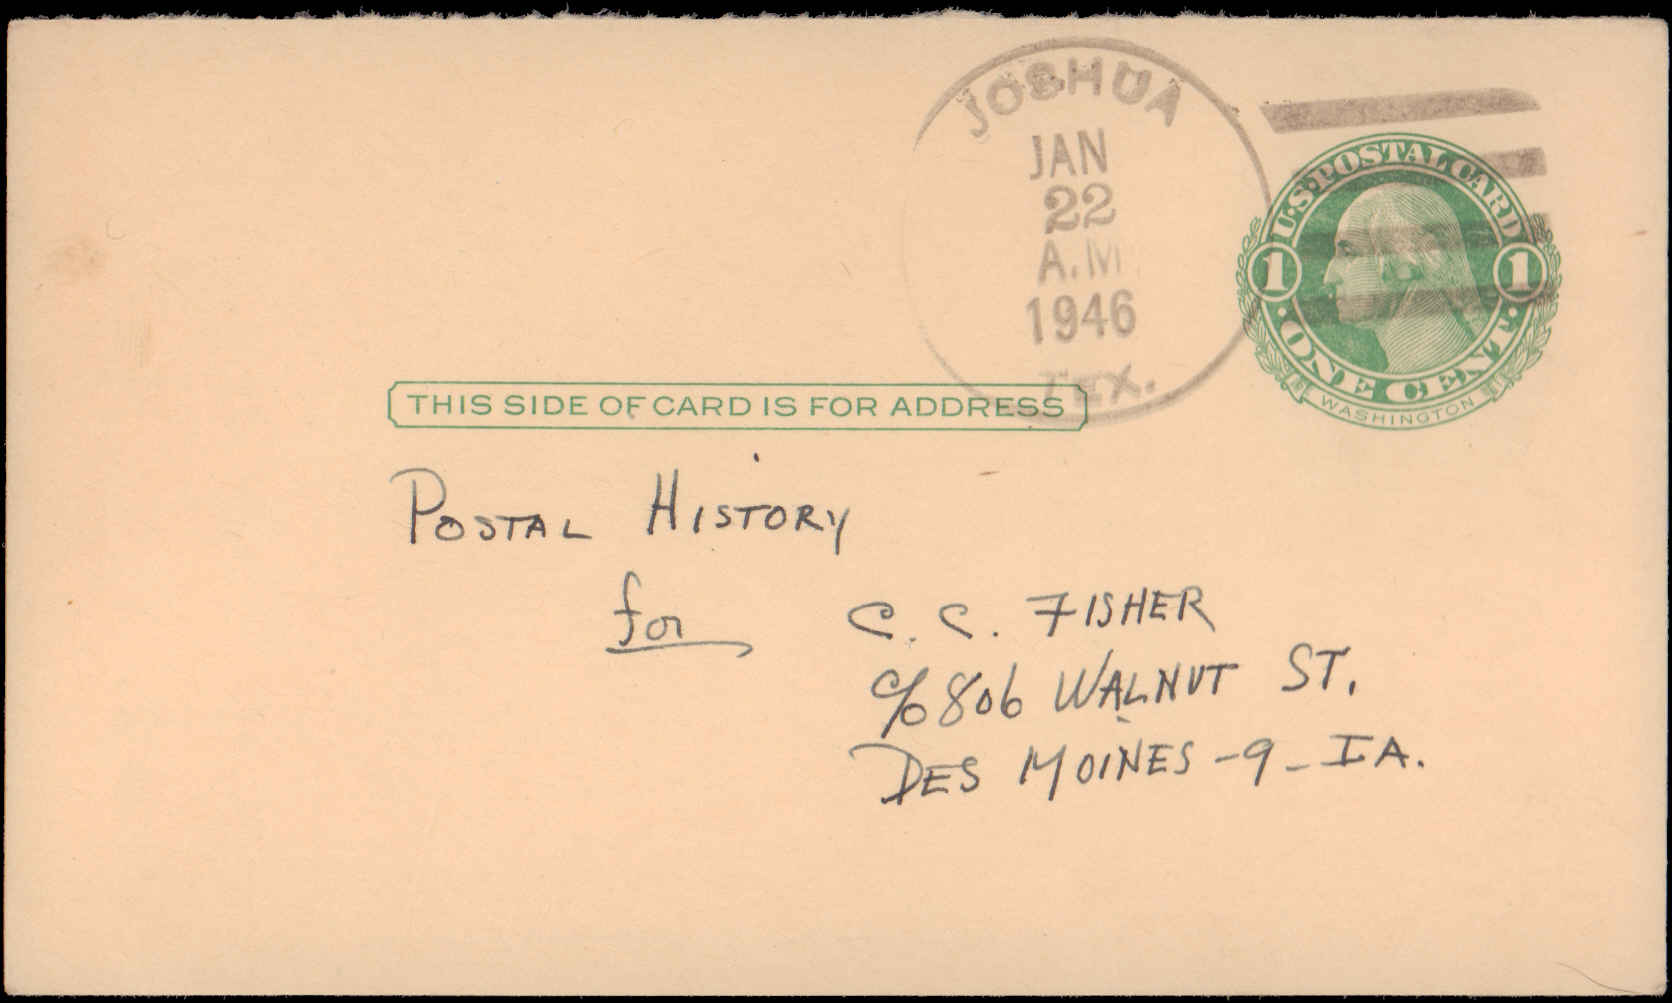 JOSHUA
JAN
22
A.M.
1946
TEX.
U.S. POSTAL CARD
1 1
· ONE CENT ·
WASHINGTON
THIS SIDE OF CARD IS FOR ADDRESS
POSTAL HISTORY
for C. C. FISHER
c/o 806 WALNUT ST.
DES MOINES -9- IA.